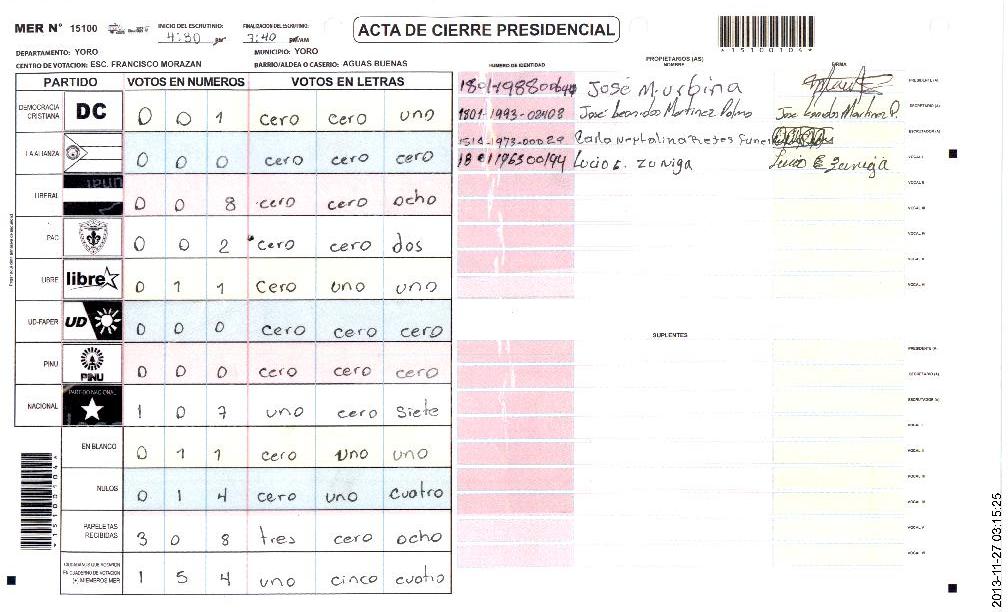 MER N° 15100
INICIO DEL ESCRUTINIO: 4:30 PM
FINALIZACION DEL ESCRUTINIO: 7:40 PM/AM
ACTA DE CIERRE PRESIDENCIAL
*15100104*
DEPARTAMENTO: YORO
MUNICIPIO: YORO
CENTRO DE VOTACION: ESC. FRANCISCO MORAZAN
BARRIO/ALDEA O CASERIO: AGUAS BUENAS
PARTIDO VOTOS EN NUMEROS VOTOS EN LETRAS
DEMOCRACIA CRISTIANA DC 0 0 1 cero cero uno
LA ALIANZA 0 0 0 cero cero cero
LIBERAL 0 0 8 cero cero ocho
PAC 0 0 2 cero cero dos
LIBRE libre 0 1 1 cero uno uno
UD-FAPER UD 0 0 0 cero cero cero
PINU PINU 0 0 0 cero cero cero
NACIONAL PARTIDO NACIONAL 1 0 7 uno cero siete
EN BLANCO 0 1 1 cero uno uno
NULOS 0 1 4 cero uno cuatro
PAPELETAS RECIBIDAS 3 0 8 tres cero ocho
CIUDADANOS QUE VOTARON EN CUADERNO DE VOTACION (+) MIEMBROS MER 1 5 4 uno cinco cuatro
PROPIETARIOS (AS)
NUMERO DE IDENTIDAD NOMBRE FIRMA
José M. urbina PRESIDENTE (A)
1801-1993-02408 José Leonidas Martinez Palma Jose Leonidas Martinez P. SECRETARIO (A)
1514-1973-00029 Reyes ESCRUTADOR (A)
Lucio E. Zuniga Lucio E Zuniga VOCAL I
VOCAL II
VOCAL III
VOCAL IV
VOCAL V
VOCAL VI
SUPLENTES
PRESIDENTE (A)
SECRETARIO (A)
ESCRUTADOR (A)
VOCAL I
VOCAL II
VOCAL III
VOCAL IV
VOCAL V
VOCAL VI
2013-11-27 03:15:25